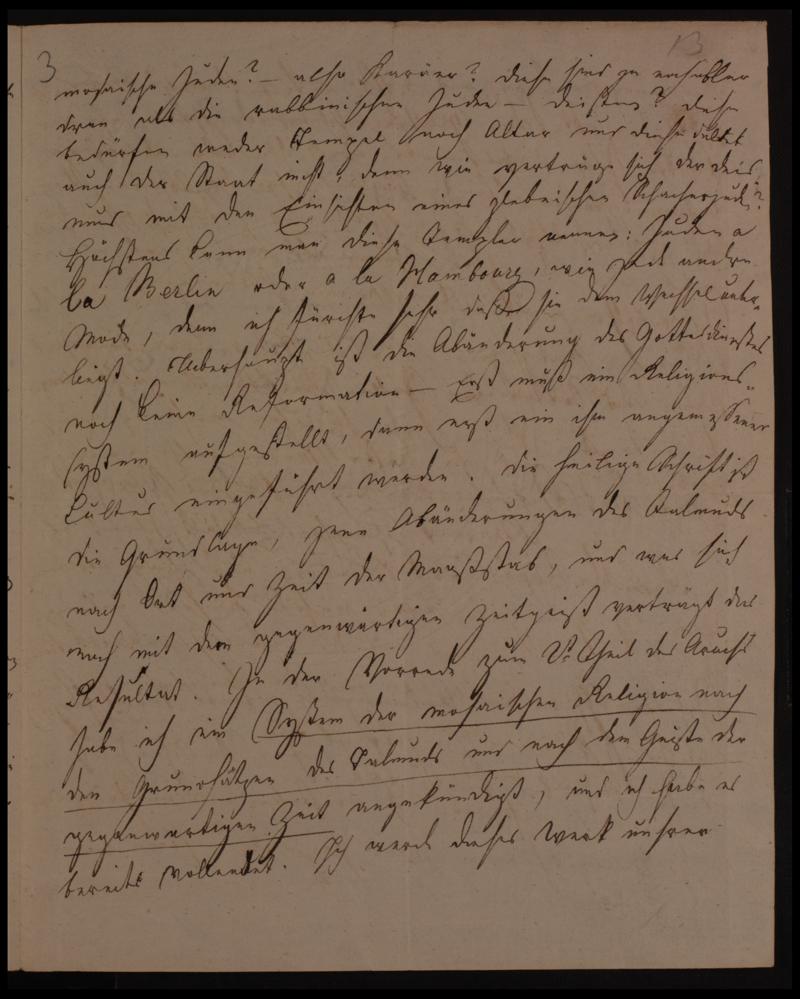 3
13
mosaische Juden? — also Karäer? diese sind ja
dran als die rabbinischen Juden — deisten? diese
bedürfen weder Tempel noch Altar und diese duldet
auch der Staat nicht, denn wie vertrüge sich der deis
mus mit den Einsichten eines plebeischen Schacherjuden?
Höchstens kann man diese Templer nennen: Juden a
la Berlin oder a la Hambourg, wie jede andre
Mode, denn ich fürchte sehr daß sie dem Wechsel unter-
liegt. Ueberhaupt ist die Abänderung des Gottesdienstes
noch keine Reformation — Erst muß ein Religions-
system aufgestellt, dann erst ein ihm angemessener
Cultus eingeführt werden. die heilige Schrift ist
die Grundlage, jene Abänderungen des Talmuds
nach Ort und Zeit der Maaßstab, und was sich
auch mit dem gegenwärtigen Zeitgeist verträgt das
Resultat. In der Vorrede zum Vn Theil des Aruchs
habe ich ein System der mosaischen Religion nach
den Grundsätzen des Talmuds und nach dem Geiste der
gegenwärtigen Zeit angekündigt, und ich habe es
bereits vollendet. Ich werde dieses Werk unsrer